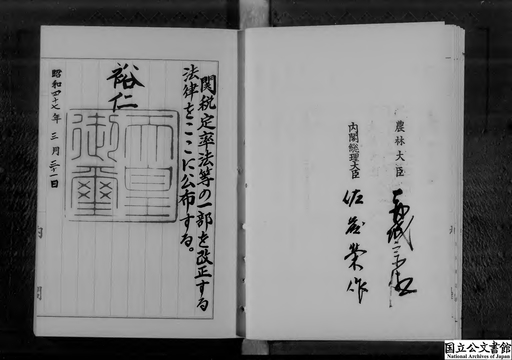 農林大臣
赤城宗徳
内閣総理大臣
佐藤榮作
関税定率法等の一部を改正する
法律をここに公布する。
裕仁
天皇
御璽
昭和四十七年三月三十一日
国立公文書館
National Archives of Japan